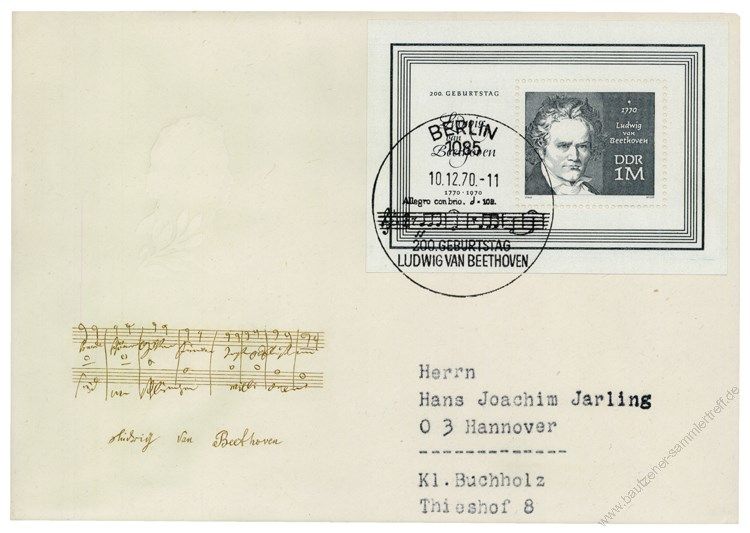 200. GEBURTSTAG
Ludwig
van
Beethoven
1770 · 1970
* 1770
Ludwig
van
Beethoven
DDR
1M
BERLIN
1085
10.12.70.-11
Allegro con brio. ♩ = 108.
200. GEBURTSTAG
LUDWIG VAN BEETHOVEN
Freude schöner Götter funken
Seid um schlungen millionen
Ludwig Van Beethoven
Herrn
Hans Joachim Jarling
O 3 Hannover
-------------
Kl. Buchholz
Thieshof 8
www.bautzener-sammlertreff.de